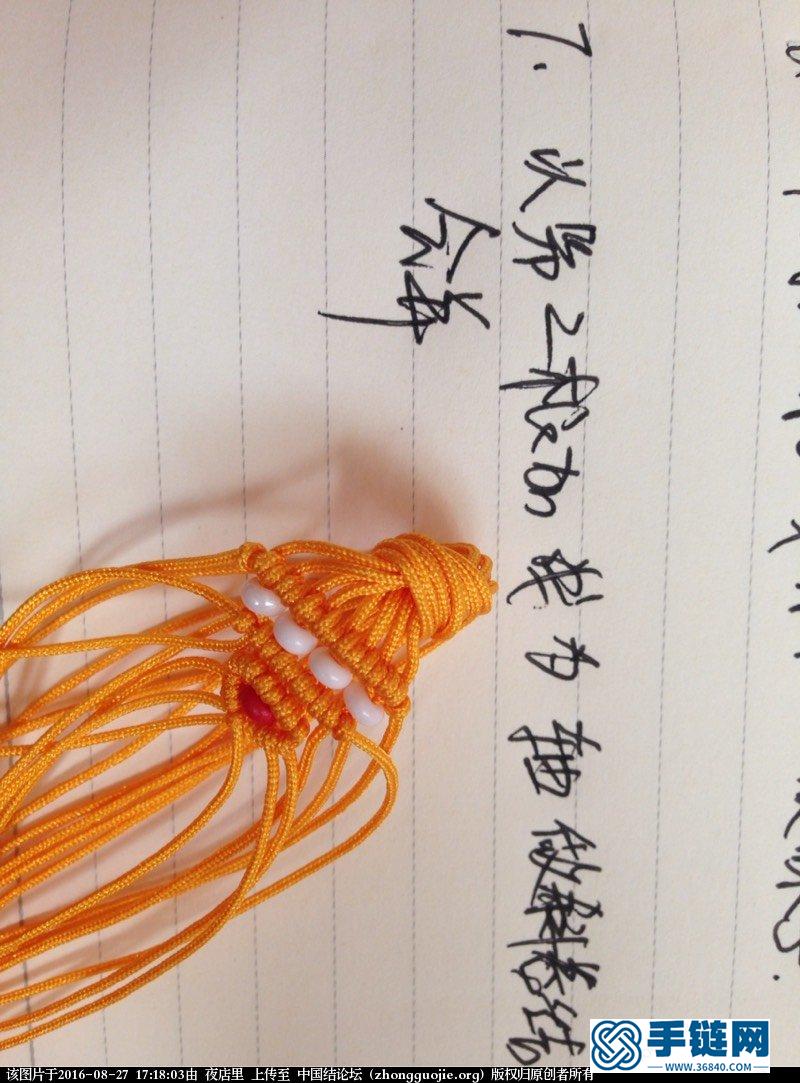 7. 以第2根加线为轴做斜卷结
合并
手链网
www.36840.com
该图片于2016-08-27 17:18:03由 夜店里 上传至 中国结论坛 (zhongguojie.org) 版权归原创者所有